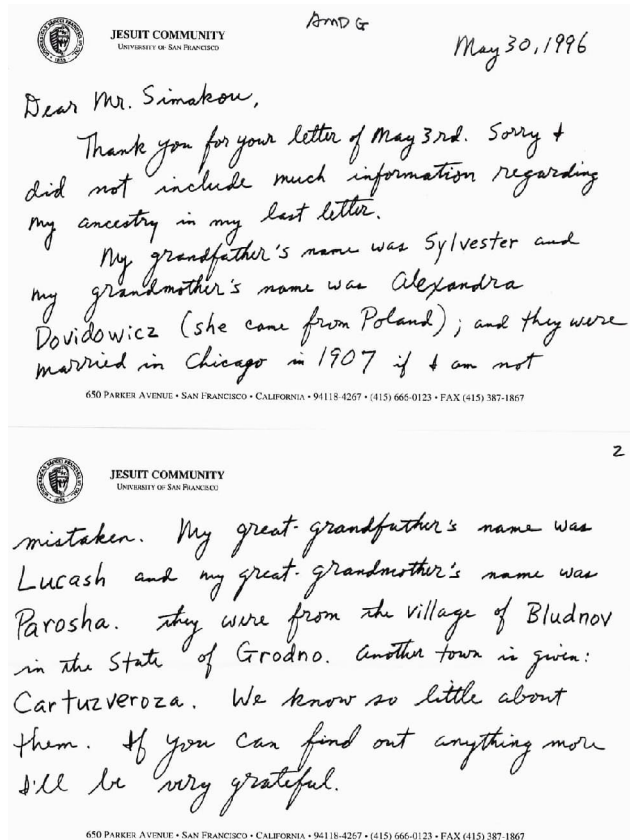 AMDG
JESUIT COMMUNITY
UNIVERSITY OF SAN FRANCISCO
May 30, 1996
Dear Mr. Simakou,
Thank you for your letter of May 3rd. Sorry I
did not include much information regarding
my ancestry in my last letter.
My grandfather's name was Sylvester and
my grandmother's name was Alexandra
Dovidowicz (she came from Poland); and they were
married in Chicago in 1907 if I am not
650 PARKER AVENUE • SAN FRANCISCO • CALIFORNIA • 94118-4267 • (415) 666-0123 • FAX (415) 387-1867
2
JESUIT COMMUNITY
UNIVERSITY OF SAN FRANCISCO
mistaken. My great-grandfather's name was
Lucash and my great-grandmother's name was
Parosha. They were from the village of Bludnov
in the State of Grodno. Another town is given:
Cartuzveroza. We know so little about
them. If you can find out anything more
I'll be very grateful.
650 PARKER AVENUE • SAN FRANCISCO • CALIFORNIA • 94118-4267 • (415) 666-0123 • FAX (415) 387-1867